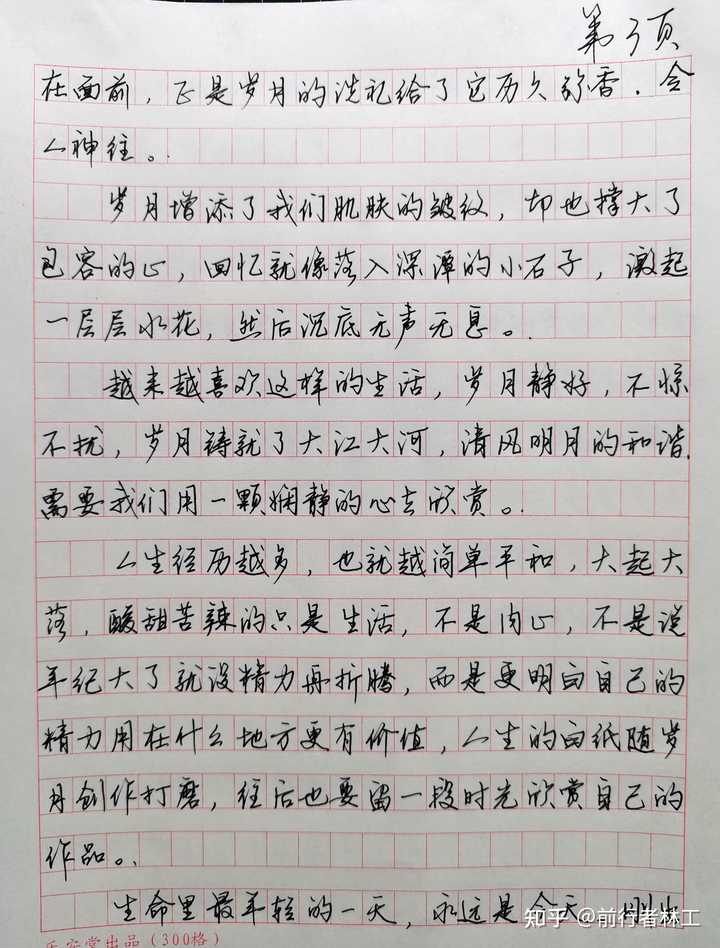 第3页
在面前，正是岁月的洗礼给了它历久弥香．令
人神往。
岁月增添了我们肌肤的皱纹，却也撑大了
包容的心，回忆就像落入深潭的小石子，激起
一层层水花，然后沉底无声无息。
越来越喜欢这样的生活，岁月静好，不惊
不扰，岁月铸就了大江大河，清风明月的和谐．
需要我们用一颗娴静的心去欣赏。
人生经历越多，也就越简单平和，大起大
落，酸甜苦辣的只是生活，不是内心，不是说
年纪大了就没精力再折腾，而是更明白自己的
精力用在什么地方更有价值，人生的白纸随岁
月创作打磨，往后也要留一段时光欣赏自己的
作品。
生命里最年轻的一天，永远是今天
知乎 @前行者林工
出品（300格）